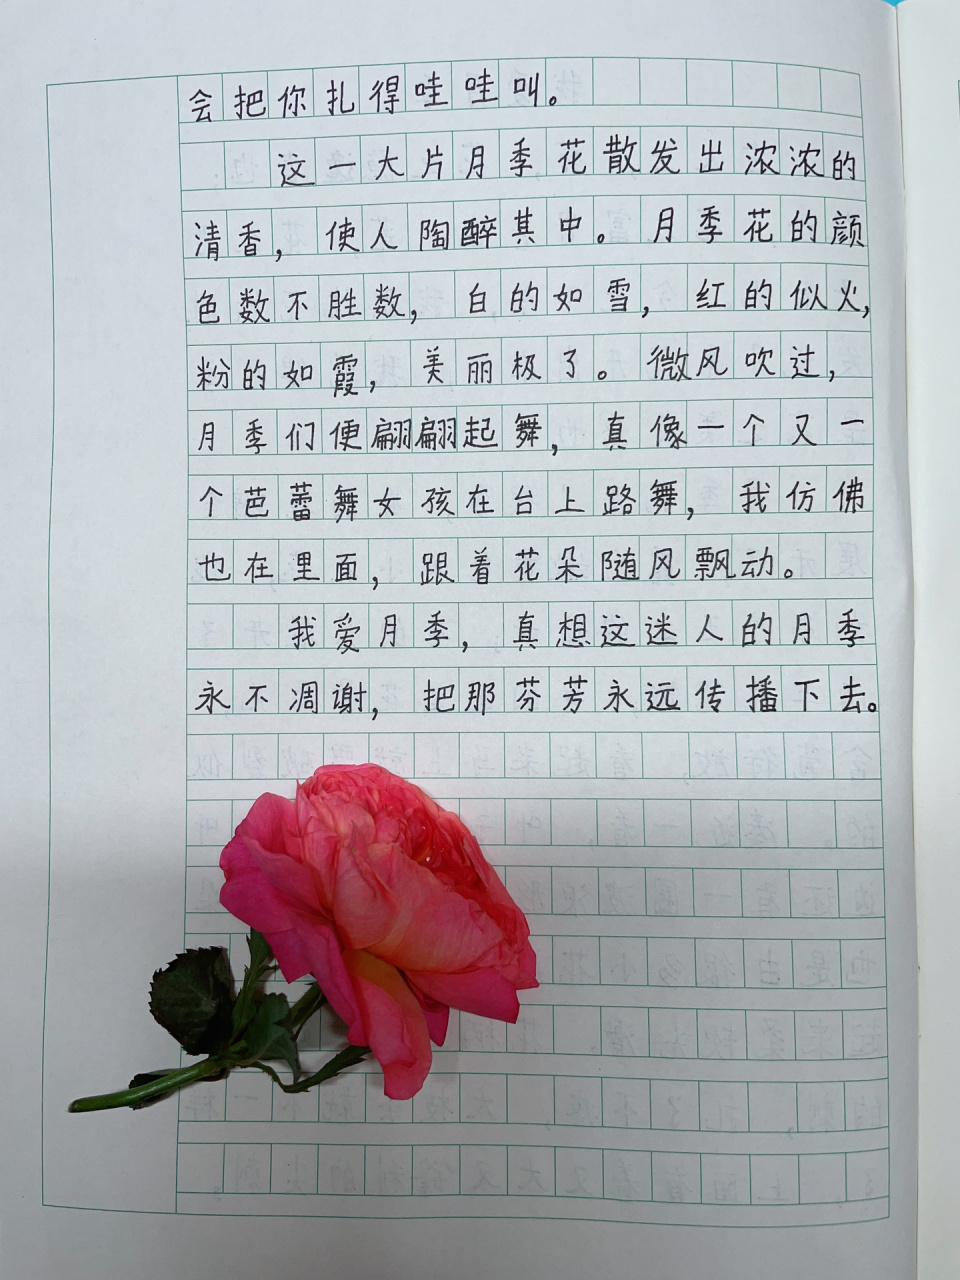 会把你扎得哇哇叫。
这一大片月季花散发出浓浓的
清香，使人陶醉其中。月季花的颜
色数不胜数，白的如雪，红的似火，
粉的如霞，美丽极了。微风吹过，
月季们便翩翩起舞，真像一个又一
个芭蕾舞女孩在台上路舞，我仿佛
也在里面，跟着花朵随风飘动。
我爱月季，真想这迷人的月季
永不凋谢，把那芬芳永远传播下去。